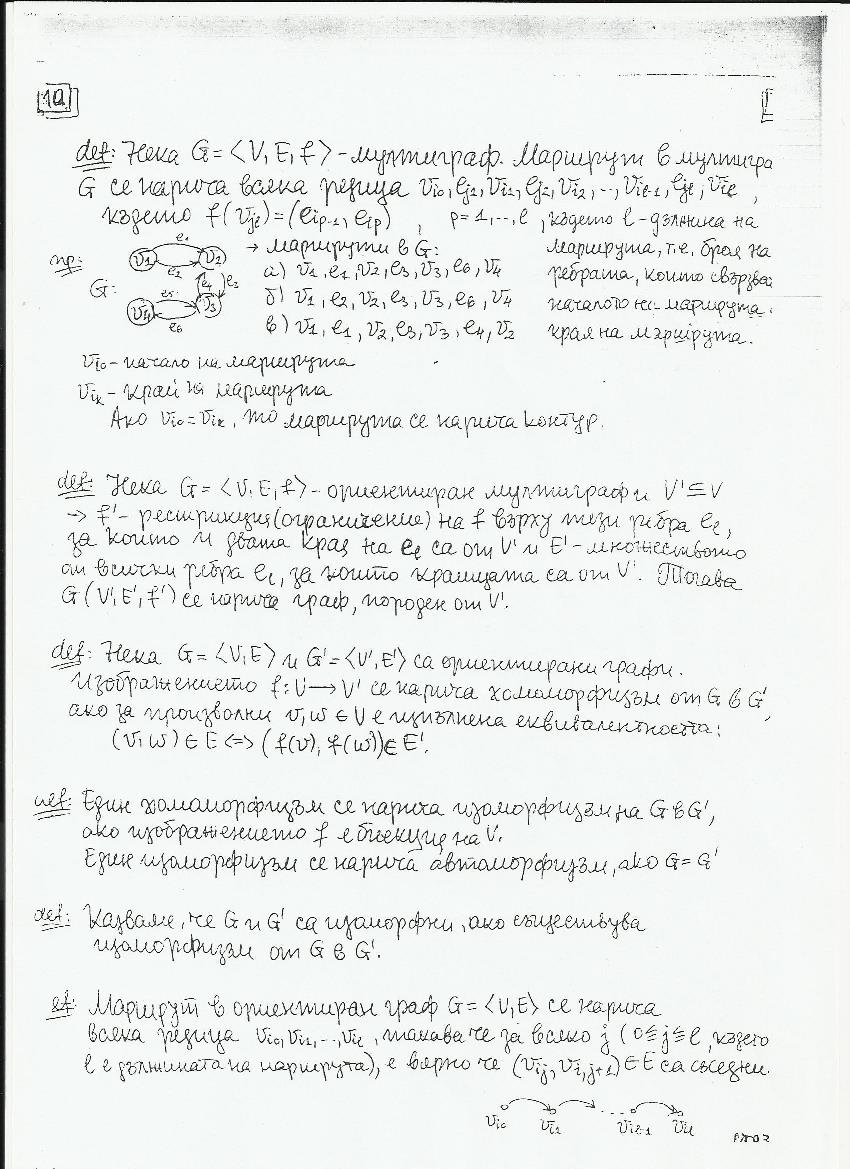 10
def: Нека G = <V, E, f> - мултиграф. Маршрут в мултигра
G се нарича всяка редица v_i0, e_j1, v_i1, e_j2, v_i2, .., v_il-1, e_jl, v_il,
където f(v_jl) = (e_ip-1, e_ip), p = 1,..,l, където l - дължина на
маршрута, т.е. броя на
ребрата, които свързва
началото на маршрута.
края на маршрута.
пр:
G:
v1 e1 v2 e2 e4 e3 e5 v4 v3 e6
→ маршрути в G:
а) v1, e1, v2, e3, v3, e6, v4
б) v1, e2, v2, e3, v3, e6, v4
в) v1, e1, v2, e3, v3, e4, v2
v_i0 - начало на маршрута
v_ik - край на маршрута
Ако v_i0 = v_ik, то маршрута се нарича контур.
def: Нека G = <V, E, f> - ориентиран мултиграф и V' ⊆ V
→ f' - рестрикция (ограничение) на f върху тези ребра e_l,
за които и двата края на e_l са от V' и E' - множеството
от всички ребра e_l, за които краищата са от V'. Тогава
G(V', E', f') се нарича граф, породен от V'.
def: Нека G = <V, E> и G' = <V', E'> са ориентирани графи.
Изображението f: V → V' се нарича хомоморфизъм от G в G',
ако за произволни v, w ∈ V е изпълнена еквивалентността:
(v, w) ∈ E <=> (f(v), f(w)) ∈ E'.
def: Един хомоморфизъм се нарича изоморфизъм на G в G',
ако изображението f е биекция на V.
Един изоморфизъм се нарича автоморфизъм, ако G = G'
def: Казваме, че G и G' са изоморфни, ако съществува
изоморфизъм от G в G'.
ef: Маршрут в ориентиран граф G = <V, E> се нарича
всяка редица v_i0, v_i1, .., v_il, такава че за всяко j (0 ≤ j ≤ l, където
l е дължината на маршрута), е вярно че (v_ij, v_i,j+1) ∈ E са съседни.
v_i0 v_i1 ... v_il-1 v_il